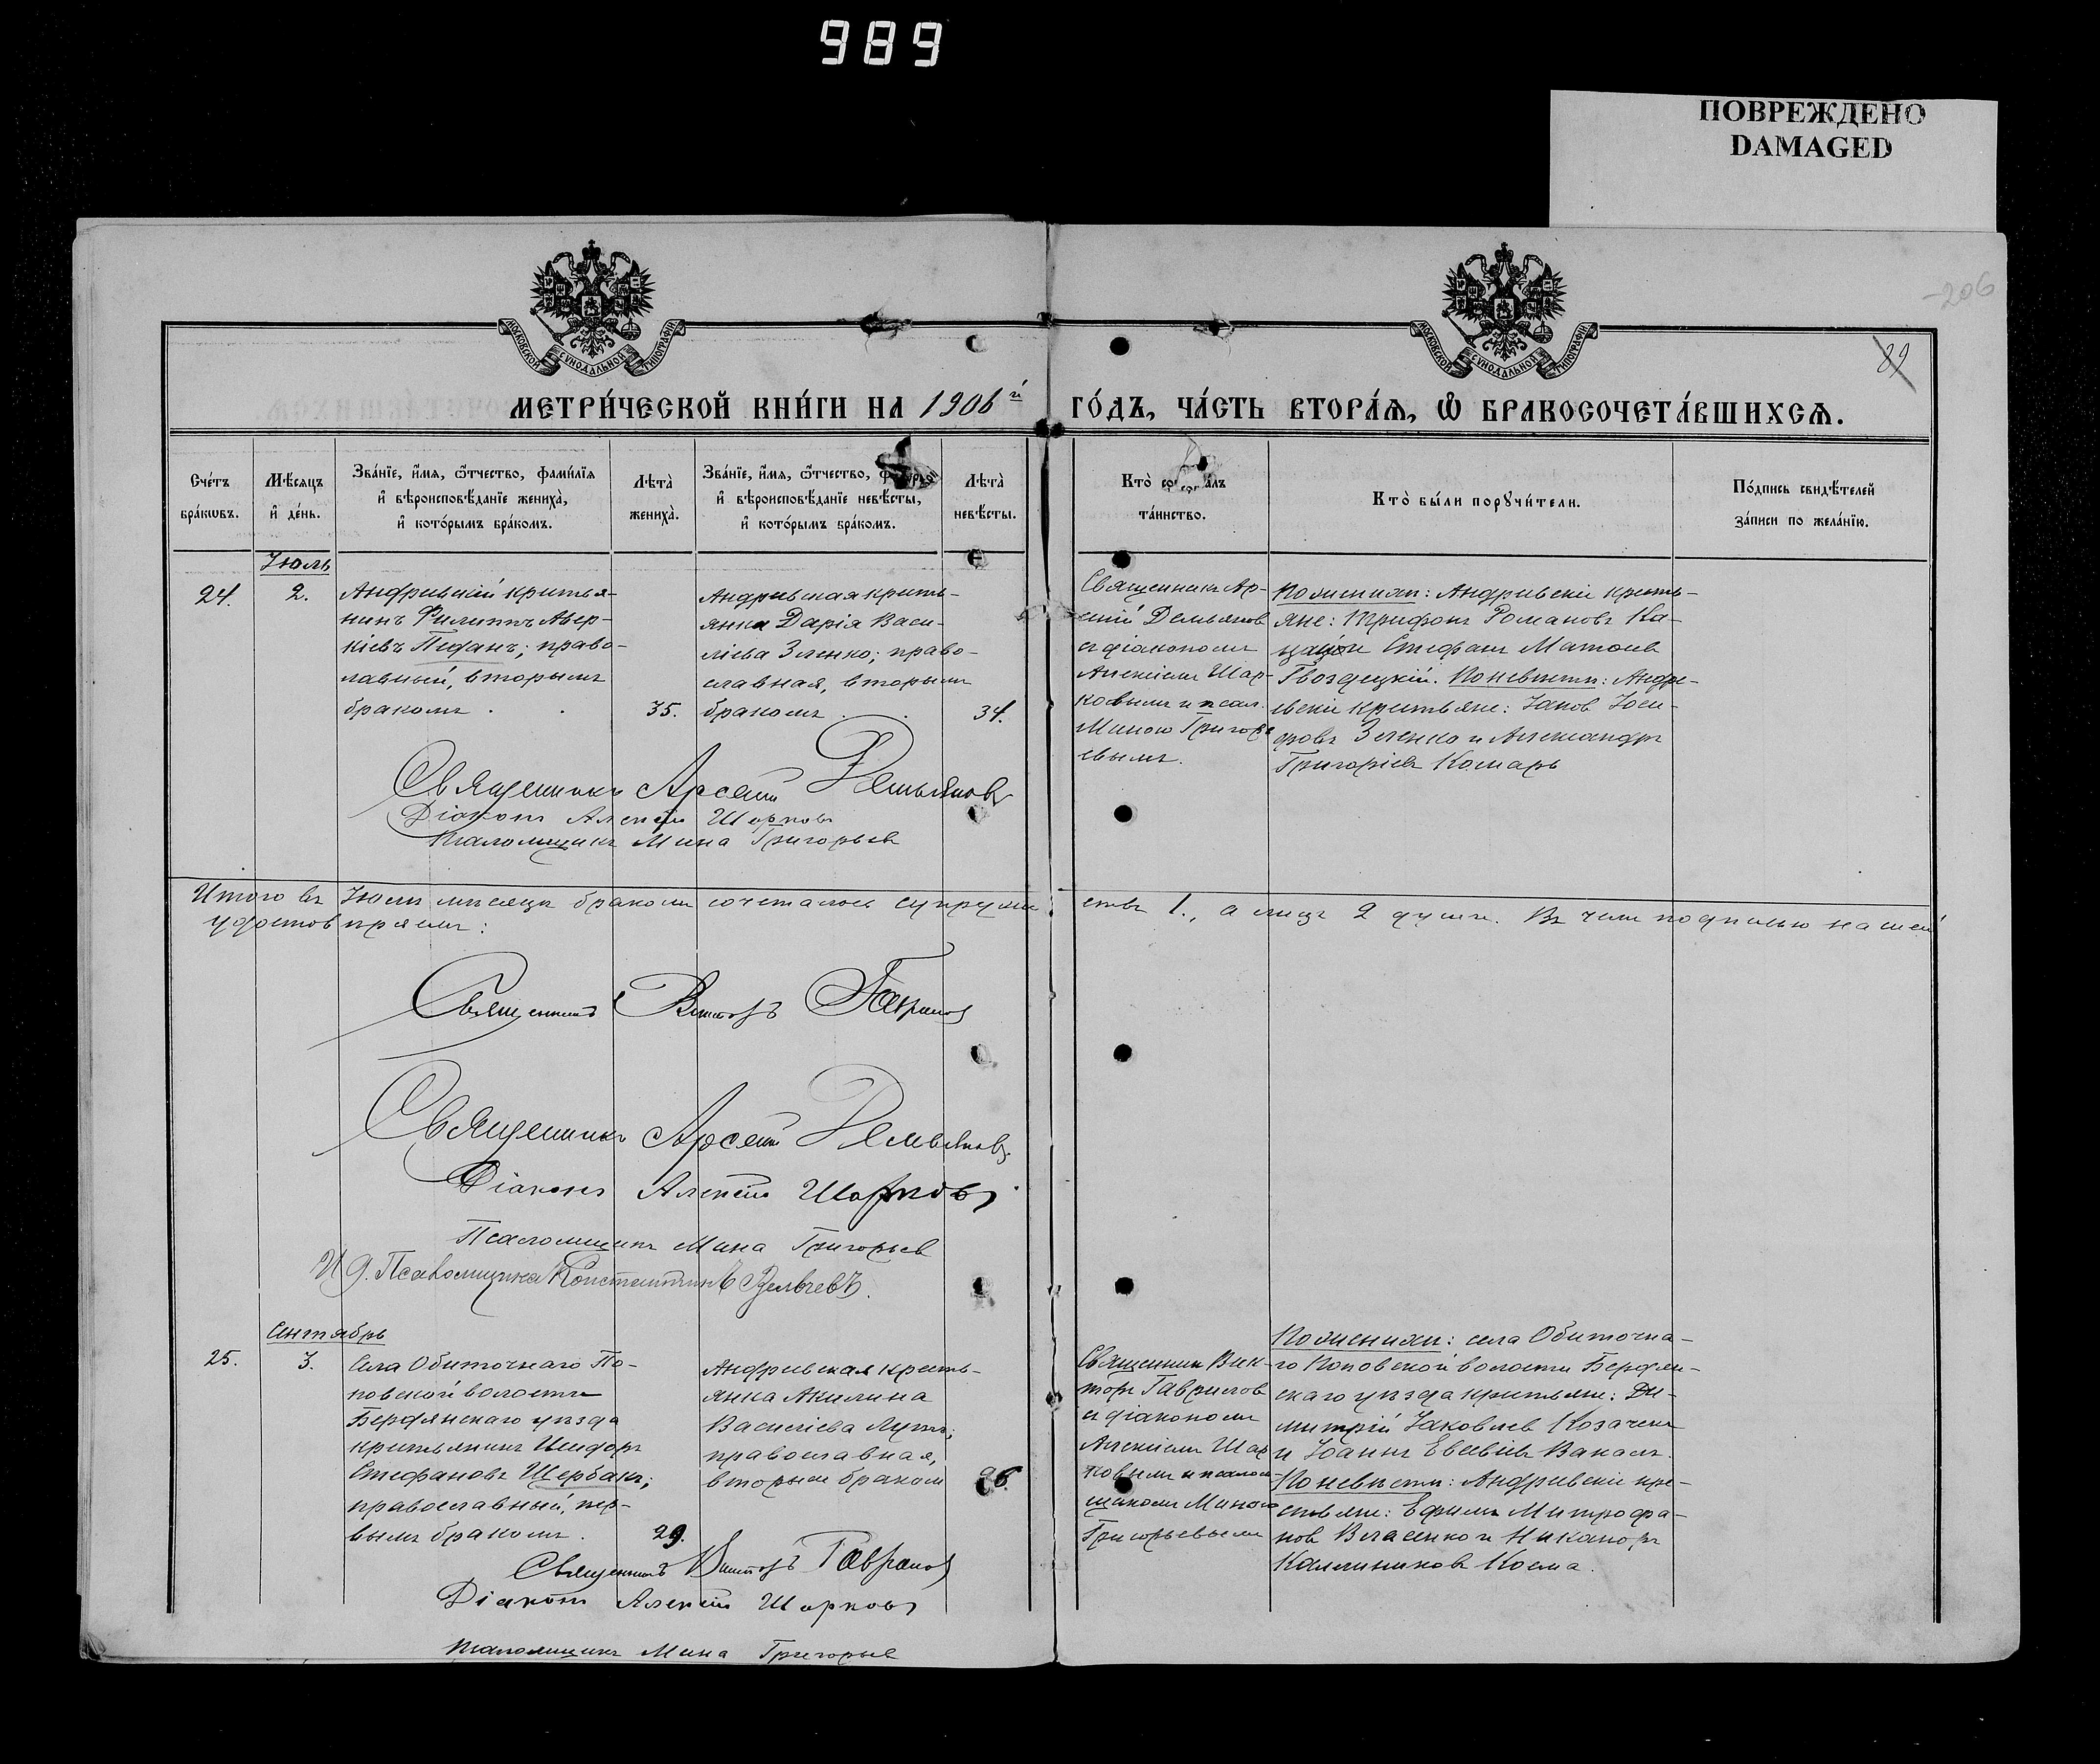 989
ПОВРЕЖДЕНО
DAMAGED
206
89
МОСКОВСКОЙ СѴНОДАЛЬНОЙ ТИПОГРАФІИ
МОСКОВСКОЙ СѴНОДАЛЬНОЙ ТИПОГРАФІИ
МЕТРИ́ЧЕСКОЙ КНИ́ГИ НА 1906й ГО́ДЪ, ЧА́СТЬ ВТОРА́Ѧ, Ѿ БРАКОСОЧЕТА́ВШИХСѦ.
Сче́тъ бра́кѡвъ.
Мѣ́сяцъ и҆ де́нь.
Зва́нїе, и҆́мя, ѻ҆́тчество, фами́лїя
и҆ вѣроисповѣ́данїе жениха̀,
и҆ кото́рымъ бра́комъ.
Лѣта̀ жениха̀.
Зва́нїе, и҆́мя, ѻ҆́тчество,
и҆ вѣроисповѣ́данїе невѣ́сты,
и҆ кото́рымъ бра́комъ.
Лѣта̀ невѣ́сты.
Кто̀
та́инство.
Кто̀ бы́ли порꙋчи́тели.
По́дпись свидѣ́телей
за́писи по жела́нїю.
Іюль
24.
2.
Андреевскій крестья-
нинъ Филиппъ Авер-
кіевъ Педанъ; право-
славный, вторымъ
бракомъ
35.
Андреевская кресть-
янка Дарія Васи-
ліева Зленко; право-
славная, вторымъ
бракомъ
34.
Священникъ Ар-
сеній Демьяновъ
съ діакономъ
Алексіемъ Шар-
ковымъ и псал.
Миною Григорь-
евымъ.
По женихѣ: Андреевскіе кресть-
яне: Трифонъ Романовъ Ка-
и Стефанъ Матѳіевъ
Гвоздецкій. По невѣстѣ: Андре-
евскіе крестьяне: Іаковъ Іоси-
фовъ Зленко и Александръ
Григоріевъ Комаръ
Священникъ Арсеній Демьяновъ
Діаконъ Алексій Шарковъ
Псаломщикъ Мина Григорьевъ
Итого въ Іюлѣ мѣсяцѣ бракомъ сочеталось супружествъ 1., а лицъ 2 души. Въ чемъ подписью нашей
удостовѣряемъ:
Священникъ Викторъ Гавриловъ
Священникъ Арсеній Демьяновъ
Діаконъ Алексій Шарковъ
Псаломщикъ Мина Григорьевъ
И. д. Псаломщика Константинъ
Сентябрь
25.
3.
Села Обиточнаго По-
повской волости
Бердянскаго уѣзда
крестьянинъ Исидоръ
Стефановъ Щербакъ;
православный, пер-
вымъ бракомъ.
29.
Андреевская кресть-
янка Акилина
Василіева Лутъ;
православная,
вторымъ бракомъ
26.
Священникъ Вик-
торъ Гавриловъ
съ діакономъ
Алексіемъ Шар-
ковымъ и псалом-
щикомъ Миною
Григорьевымъ
По женихѣ: села Обиточна-
го Поповской волости Бердян-
скаго уѣзда крестьяне: Ди-
митрій Іаковлевъ Козаченко
и Іоаннъ Евсевіевъ
По невѣстѣ: Андреевскіе кре-
стьяне: Ефимъ Митрофа-
новъ Власенко и Никаноръ
Каллиниковъ Косма.
Священникъ Викторъ Гавриловъ
Діаконъ Алексій Шарковъ
Псаломщикъ Мина Григорьевъ